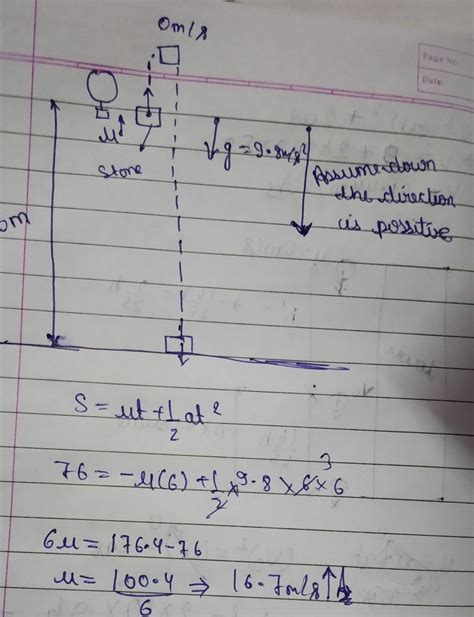 Page No.
Date:
0m/s
u
Stone
g = 9.8m/s²
Assume down
the direction
is possitive
0m
S = ut + 1/2 at²
76 = -u(6) + 1/2 × 9.8 × 6 × 6
3
6u = 176.4 - 76
u = 100.4/6 ⇒ 16.7m/s ↑